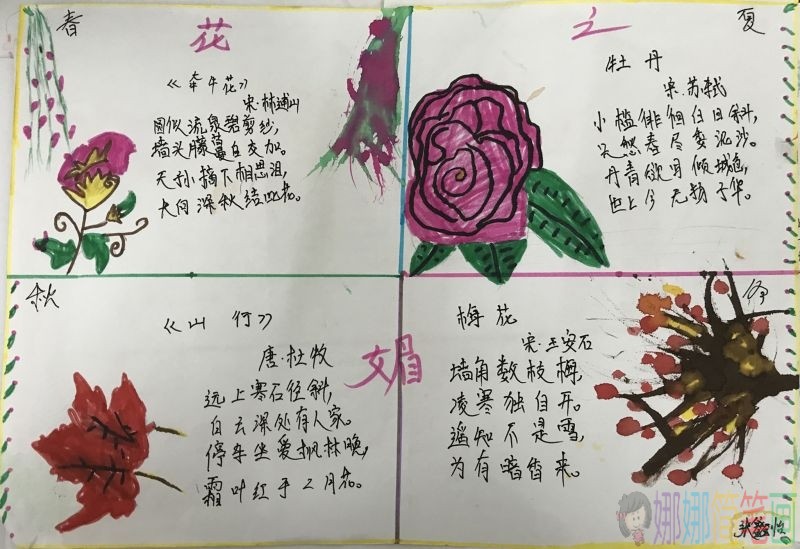 春
花
《牵牛花》
宋.林逋山
圆似流泉碧剪纱,
墙头藤蔓自交加。
天孙摘下相思泪,
大向深秋结此花。
之
夏
牡丹
宋.苏轼
小槛徘徊白日斜,
只愁春尽委泥沙。
丹青欲写倾城色,
世上今无杨子华。
秋
《山行》
唐.杜牧
远上寒石径斜,
白云深处有人家。
停车坐爱枫林晚,
霜叶红于2月花。
媚
冬
梅花
宋.王安石
墙角数枝梅,
凌寒独自开。
遥知不是雪,
为有暗香来。
娜娜简笔画